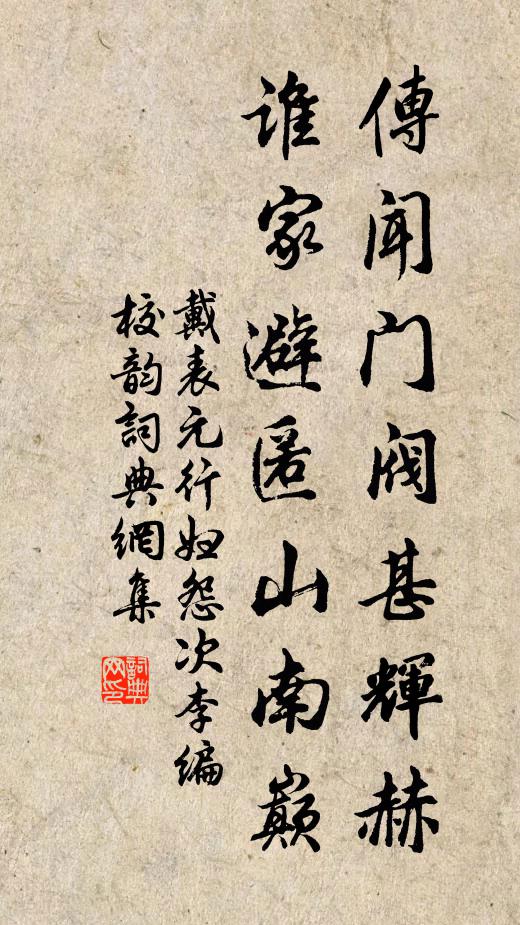 傳聞門閥甚輝赫
誰家避匿山南巔
戴表元行妇怨次李编
校韵詞典網集
詞典
网印